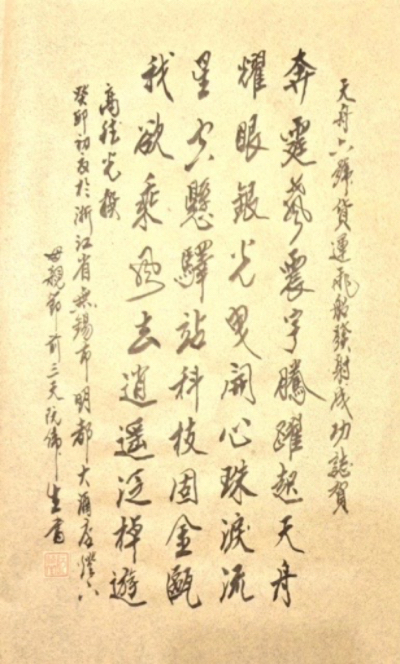 天舟六號貨運飛船發射成功誌賀
奔霆驀震宇騰躍起天舟
耀眼銀光曳開心珠淚流
星空懸驛站科技固金甌
我欲乘風去逍遥泛棹遊
高光撰
癸卯初夏於浙江省無錫市明都大酒店燈下
母親節前三天阮偉生書